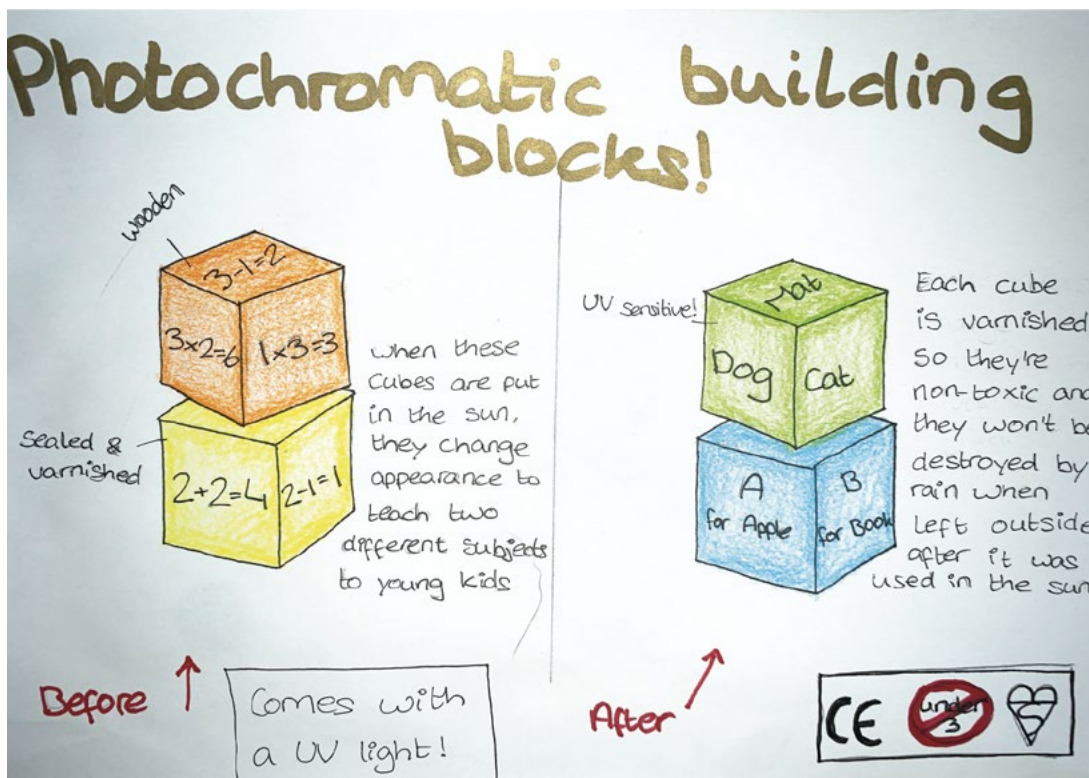 Photochromatic building
blocks!
wooden
3-1=2
3×2=6
1×3=3
Sealed &
varnished
2+2=4
2-1=1
when these
cubes are put
in the sun,
they change
appearance to
teach two
different subjects
to young kids
Before
Comes with
a UV light!
UV sensitive!
Mat
Dog
Cat
A
for Apple
B
for Book
Each cube
is varnished
So they're
non-toxic and
they won't be
destroyed by
rain when
left outside
after it was
used in the sun
After
CE
under
3